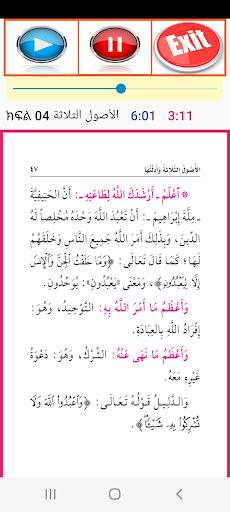 Exit
ክፍል 04 الأصول الثلاثة 6:01 3:11
الأُصُولُ الثَّلَاثَةُ وَأَدِلَّتُهَا ٤٧
* اعْلَمْ ـ أَرْشَدَكَ اللَّهُ لِطَاعَتِهِ ـ: أَنَّ الحَنِيفِيَّةَ
ـ مِلَّةَ إِبْرَاهِيمَ ـ: أَنْ تَعْبُدَ اللَّهَ وَحْدَهُ مُخْلِصاً لَهُ
الدِّينَ، وَبِذَلِكَ أَمَرَ اللَّهُ جَمِيعَ النَّاسِ وَخَلَقَهُمْ
لَهَا؛ كَمَا قَالَ تَعَالَى: ﴿وَمَا خَلَقْتُ الْجِنَّ وَالْإِنسَ
إِلَّا لِيَعْبُدُونِ﴾، وَمَعْنَى «يَعْبُدُونِ»: يُوَحِّدُونِ.
وَأَعْظَمُ مَا أَمَرَ اللَّهُ بِهِ: التَّوْحِيدُ، وَهُوَ:
إِفْرَادُ اللَّهِ بِالعِبَادَةِ.
وَأَعْظَمُ مَا نَهَى عَنْهُ: الشِّرْكُ، وَهُوَ: دَعْوَةُ
غَيْرِهِ مَعَهُ.
وَالدَّلِيلُ قَوْلُهُ تَعَالَى: ﴿وَاعْبُدُوا اللَّهَ وَلَا
تُشْرِكُوا بِهِ شَيْئًا﴾.